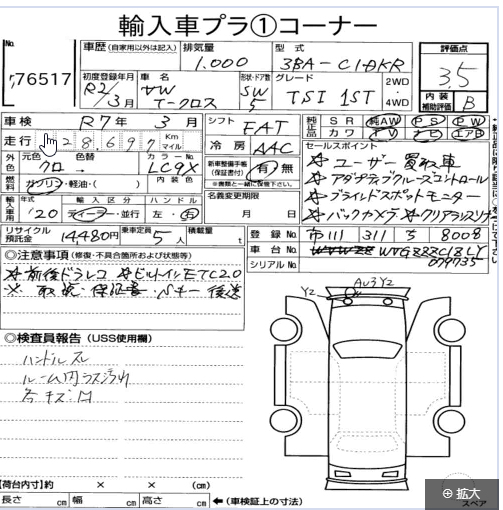 輸入車プラ①コーナー
No. 76517
車歴 (自家用以外は記入) 排気量 1.000 型式 3BA-C1DKR 評価点 3.5
初度登録年月 R2/3月 車名 VW T-クロス 形状・ドア数 SW 5 グレード TSI 1ST 2WD・4WD 内装補助評価 B
車検 R7年 3月 シフト FAT 純正品 SR 純AW PS PW
カワ TV ナビ エアB
走行 28697 Km マイル 冷房 AAC セールスポイント
外色 元色 クロ 色替 カラーNo. LC9X 新車整備手帳(保証書付) 有・無 ※書類と一緒に保管下さい。
☆ ユーザー買取車
燃料 ガソリン・軽油・( ) 内装色 名義変更期限 月 日
☆ アダプティブクルーズコントロール
輸入車用 '20 輸入区分 ディーラー・並行 ハンドル 左・右
☆ ブラインドスポットモニター
☆ バックカメラ ☆ クリアランスソナー
リサイクル預託金 14,480円 乗車定員 5人 積載量 t 登録No. 市川 311 ち 8008
車台No. WVGZZZC1ZLY
079735
シリアルNo.
◎注意事項 (修復・不具合箇所および状態等)
☆ 前後ドラレコ ☆ ビルトインETC2.0
※ 取説・保証書・Sキー 後送
◎検査員報告 (USS使用欄)
ハンドルスレ
ルーム内ラスジ汚れ
各キズ凹
Y2 AU3 Y2
【荷台内寸】約 × × (cm)
長さ cm 幅 cm 高さ cm ←(車検証上の寸法)
スペア
拡大